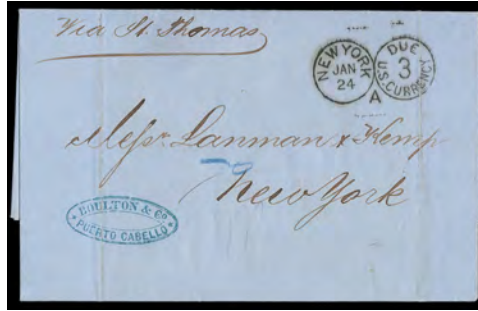 Via St. Thomas
NEW YORK
JAN
24
A
DUE
3
U.S. CURRENCY
Messrs. Lanman & Kemp
New York
BOULTON & Co
PUERTO CABELLO